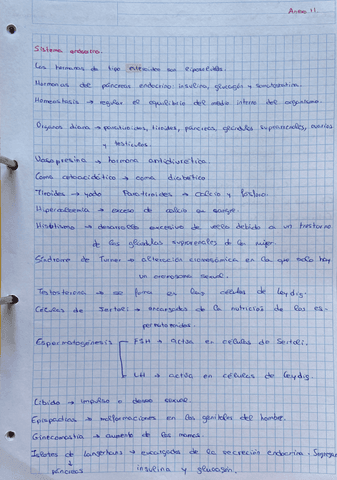 Anexo 11.
Sistema endocrino.
Las hormonas de tipo esteroides son liposolubles.
Hormonas del páncreas endocrino: insulina, glucagón y somatostatina.
Homeostasis → regular el equilibrio del medio interno del organismo.
Órganos diana → paratiroides, tiroides, páncreas, glándulas suprarrenales, ovarios
y testículos.
Vasopresina → hormona antidiurética
Coma cetoacidótico → coma diabético
Tiroides → yodo Paratiroides → calcio y fósforo.
Hipercalcemia → exceso de calcio en sangre
Hirsutismo → desarrollo excesivo de vello debido a un trastorno
de las glándulas suprarrenales de la mujer.
Síndrome de Turner → alteración cromosómica en la que solo hay
un cromosoma sexual.
Testosterona → se forma en las células de Leydig.
Células de Sertoli → encargadas de la nutrición de los es-
permatozoides.
Espermatogénesis FSH → actúa en células de Sertoli.
LH → actúa en células de Leydig.
Libido → impulso o deseo sexual.
Epispadias → malformaciones en los genitales del hombre.
Ginecomastia → aumento de las mamas.
Islotes de Langerhans → encargados de la secreción endocrina. Segregan
páncreas insulina y glucagón.